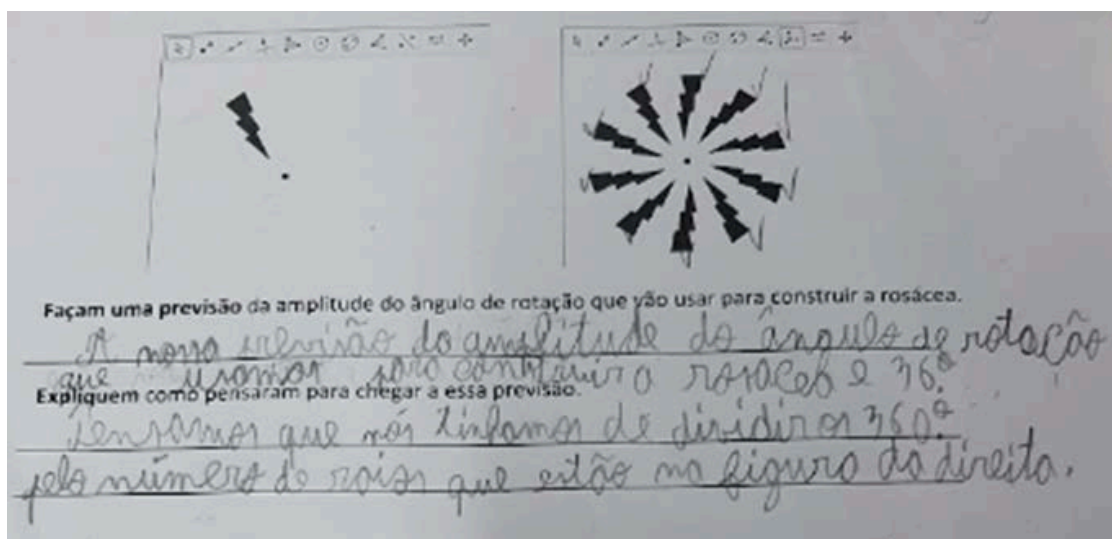 Façam uma previsão da amplitude do ângulo de rotação que vão usar para construir a rosácea.
A nossa previsão da amplitude do ângulo de rotação
que usamos para construir a rosácea é 36.º
Expliquem como pensaram para chegar a essa previsão.
Pensamos que nós tinhamos de dividir os 360.º
pelo número de raios que estão na figura da direita.